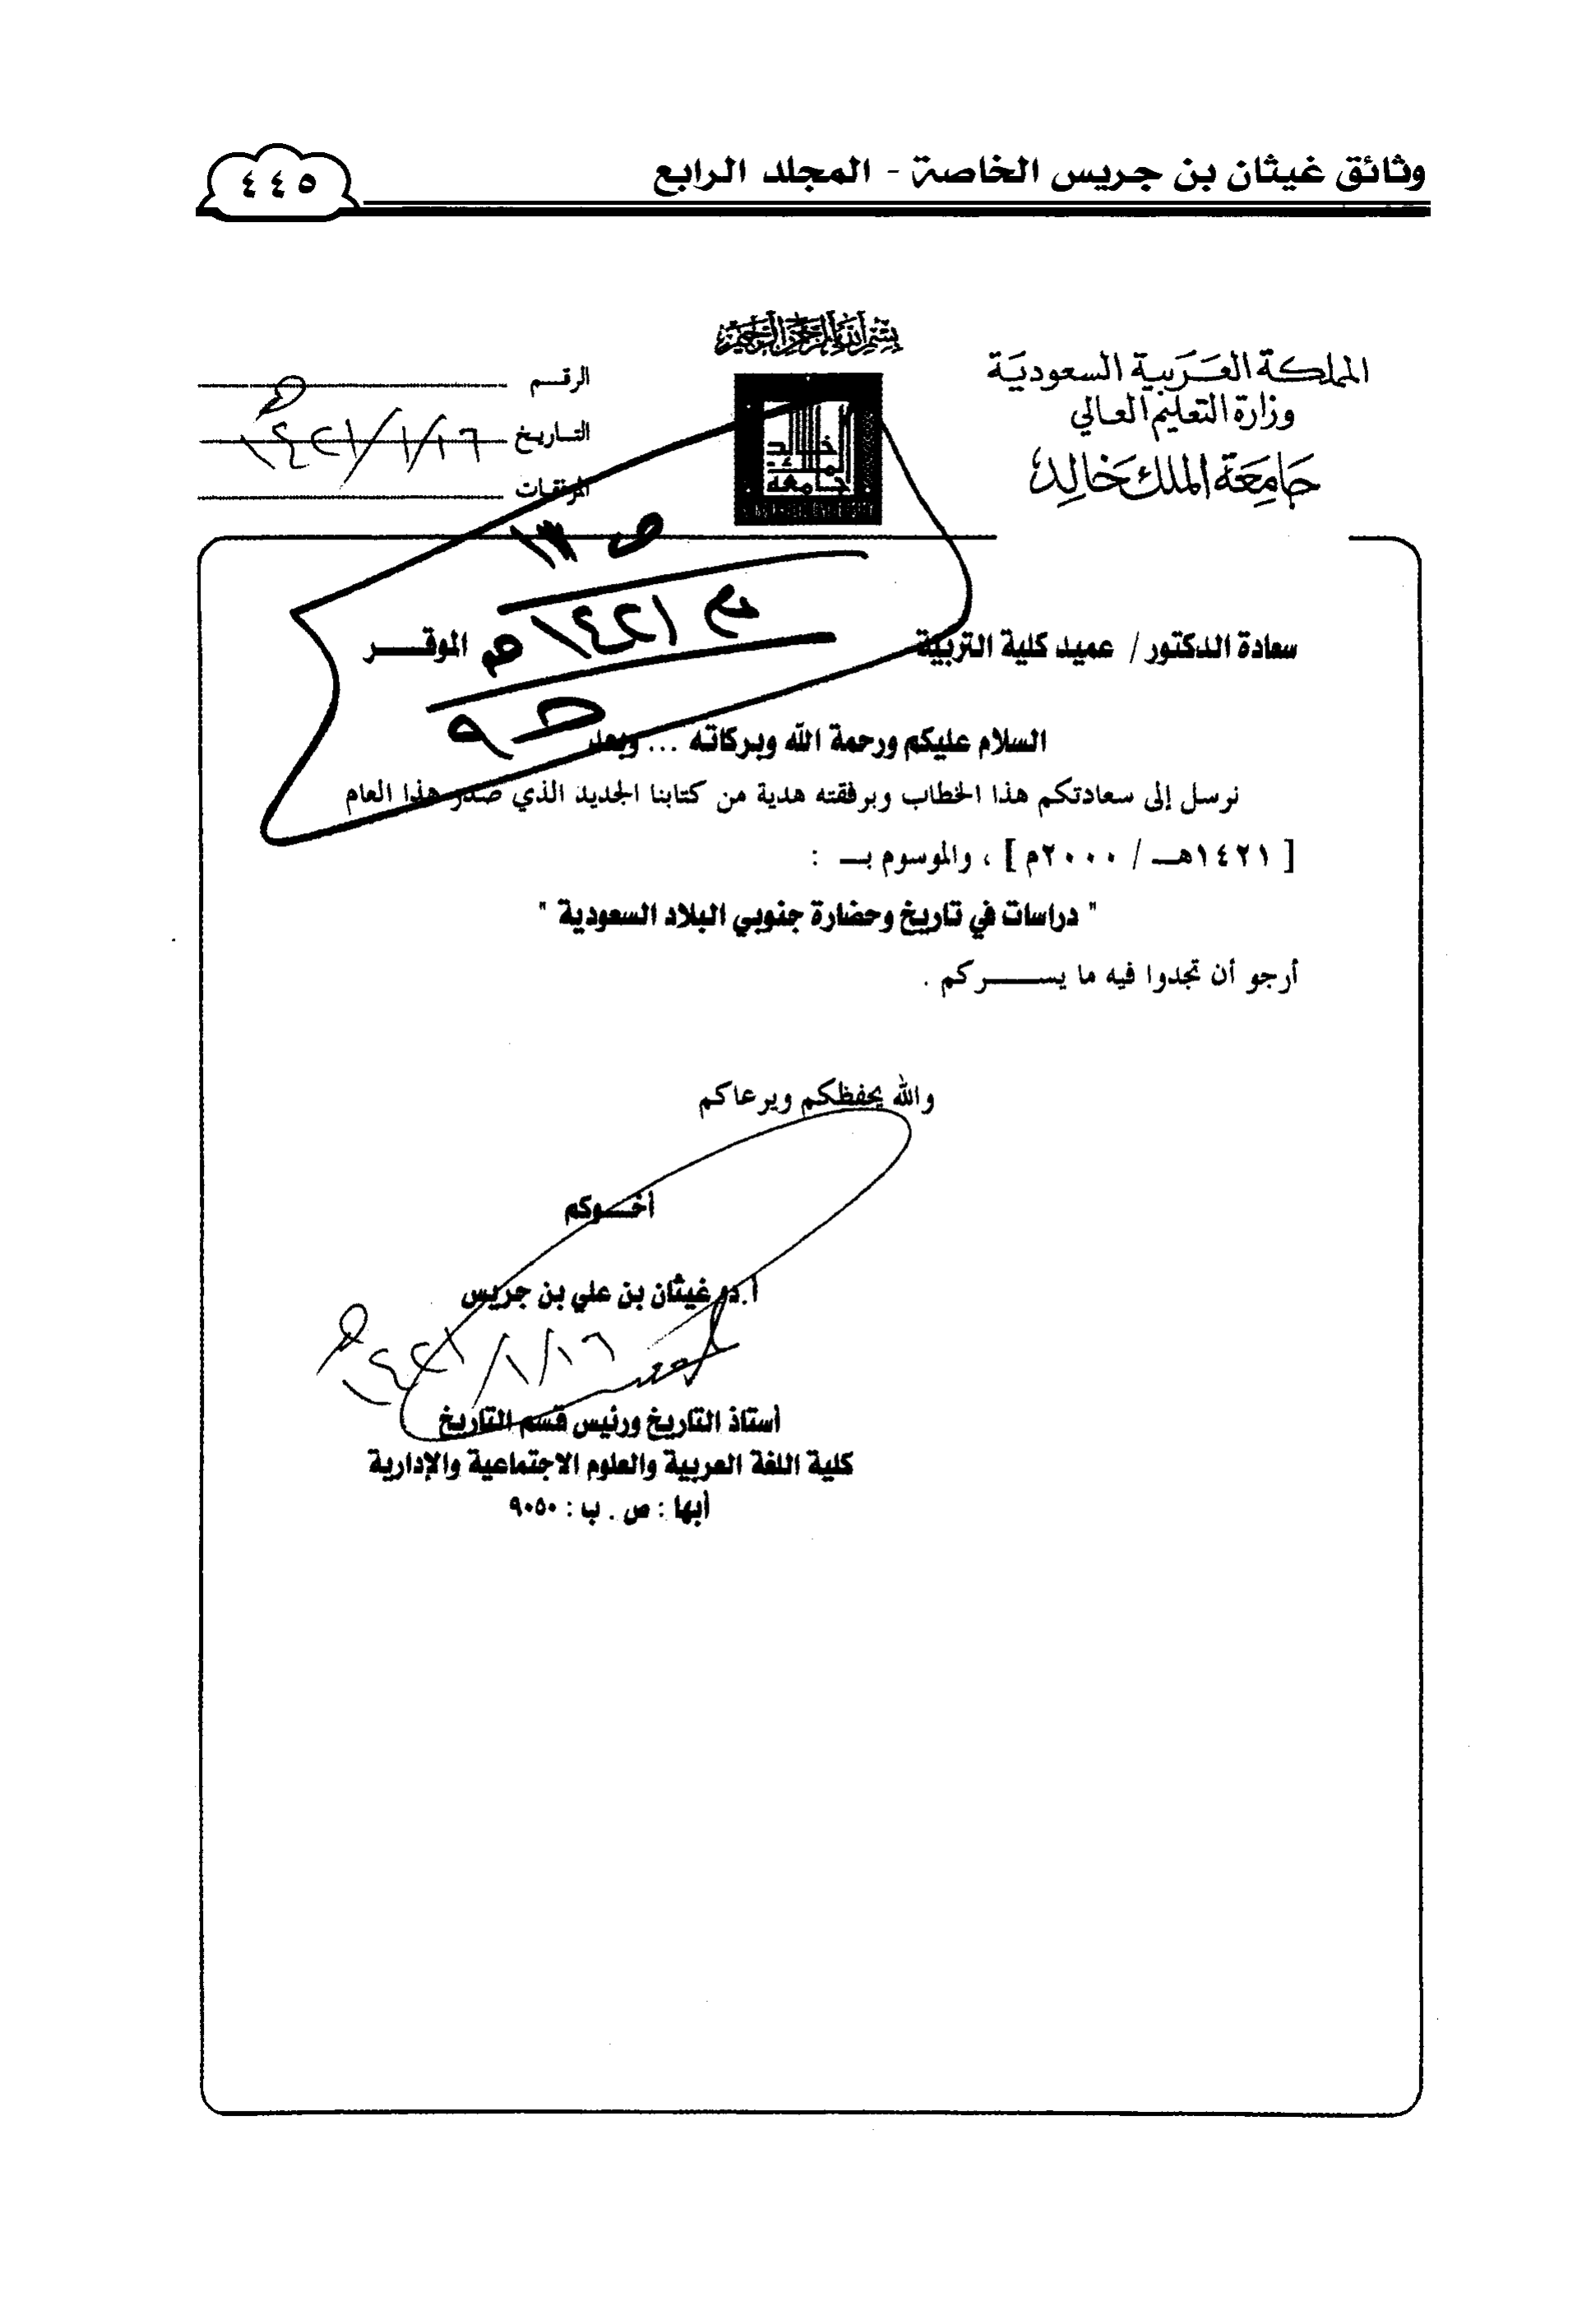 وثائق غيثان بن جريس الخاصة - المجلد الرابع
٤٤٥
بسم الله الرحمن الرحيم
المملكة العربية السعودية
وزارة التعليم العالي
جامعة الملك خالد
الرقـم
التـاريخ ١٤٢١/١/١٦هـ
المرفقـات
جامعة الملك خالد
م ١٤٢١هـ
سعادة الدكتور / عميد كلية التربية الموقـــر
السلام عليكم ورحمة الله وبركاته ... وبعد
نرسل إلى سعادتكم هذا الخطاب وبرفقته هدية من كتابنا الجديد الذي صدر هذا العام
[ ١٤٢١هـ / ٢٠٠٠م ] ، والموسوم بـ :
" دراسات في تاريخ وحضارة جنوبي البلاد السعودية "
أرجو أن تجدوا فيه ما يســـركم .
والله يحفظكم ويرعاكم
أخــوكم
أ.د. غيثان بن علي بن جريس
١٤٢١/١/١٦هـ
أستاذ التاريخ ورئيس قسم التاريخ
كلية اللغة العربية والعلوم الاجتماعية والإدارية
أبها : ص . ب : ٩٠٥٠